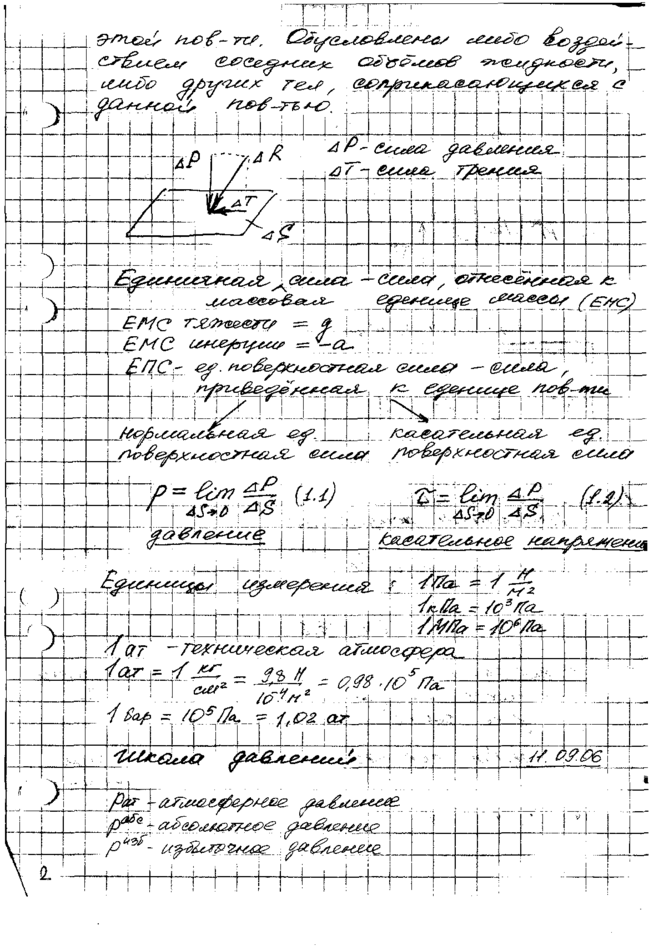 этой пов-ти. Обусловлены либо воздей-
ствием соседних объёмов жидкости,
либо других тел, соприкасающихся с
данной пов-тью.
ΔP ΔR
ΔT
ΔS
ΔP - сила давления
ΔT - сила трения
Единичная сила - сила, отнесённая к
массовая еденице массы (ЕМС)
ЕМС тяжести = g
ЕМС инерции = -a
ЕПС - ед. поверхностная сила - сила,
приведённая к еденице пов-ти
нормальная ед. касательная ед.
поверхностная сила поверхностная сила
P = lim ΔP/ΔS (1.1) τ = lim ΔP/ΔS (1.2)
ΔS→0 ΔS→0
давление касательное напряжени
Единицы измерения: 1Па = 1 Н/м²
1кПа = 10³Па
1МПа = 10⁶Па
1 ат - техническая атмосфера
1 ат = 1 кг/см² = 9,8 Н/10⁻⁴м² = 0,98·10⁵ Па
1 бар = 10⁵ Па = 1,02 ат
Шкала давлений 11.09.06
Pат - атмосферное давление
pабс - абсолютное давление
pизб - избыточное давление
2